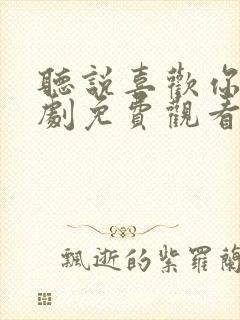 聽說喜歡你
劇免費觀看
飄逝的紫羅蘭